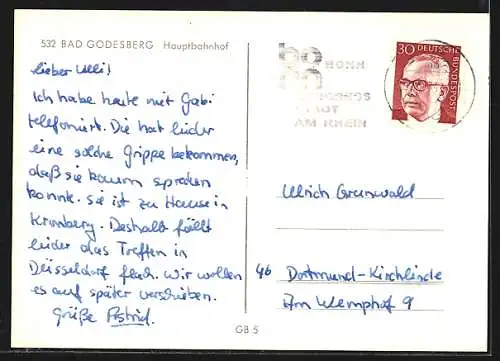 532 BAD GODESBERG Hauptbahnhof
lieber Ulli!
Ich habe heute mit Gabi
telefoniert. Die hat leider
eine solche Grippe bekommen,
daß sie kaum sprechen
konnte. Sie ist zu Hause in
Kronberg. Deshalb fällt
leider das Treffen in
Düsseldorf flach. Wir wollen
es auf später verschieben.
Grüße Astrid.
BONN
STADT
AM RHEIN
30 DEUTSCHE BUNDESPOST
Ulrich Grunwald
46 Dortmund-Kirchlinde
Am Wemphof 9
GB 5